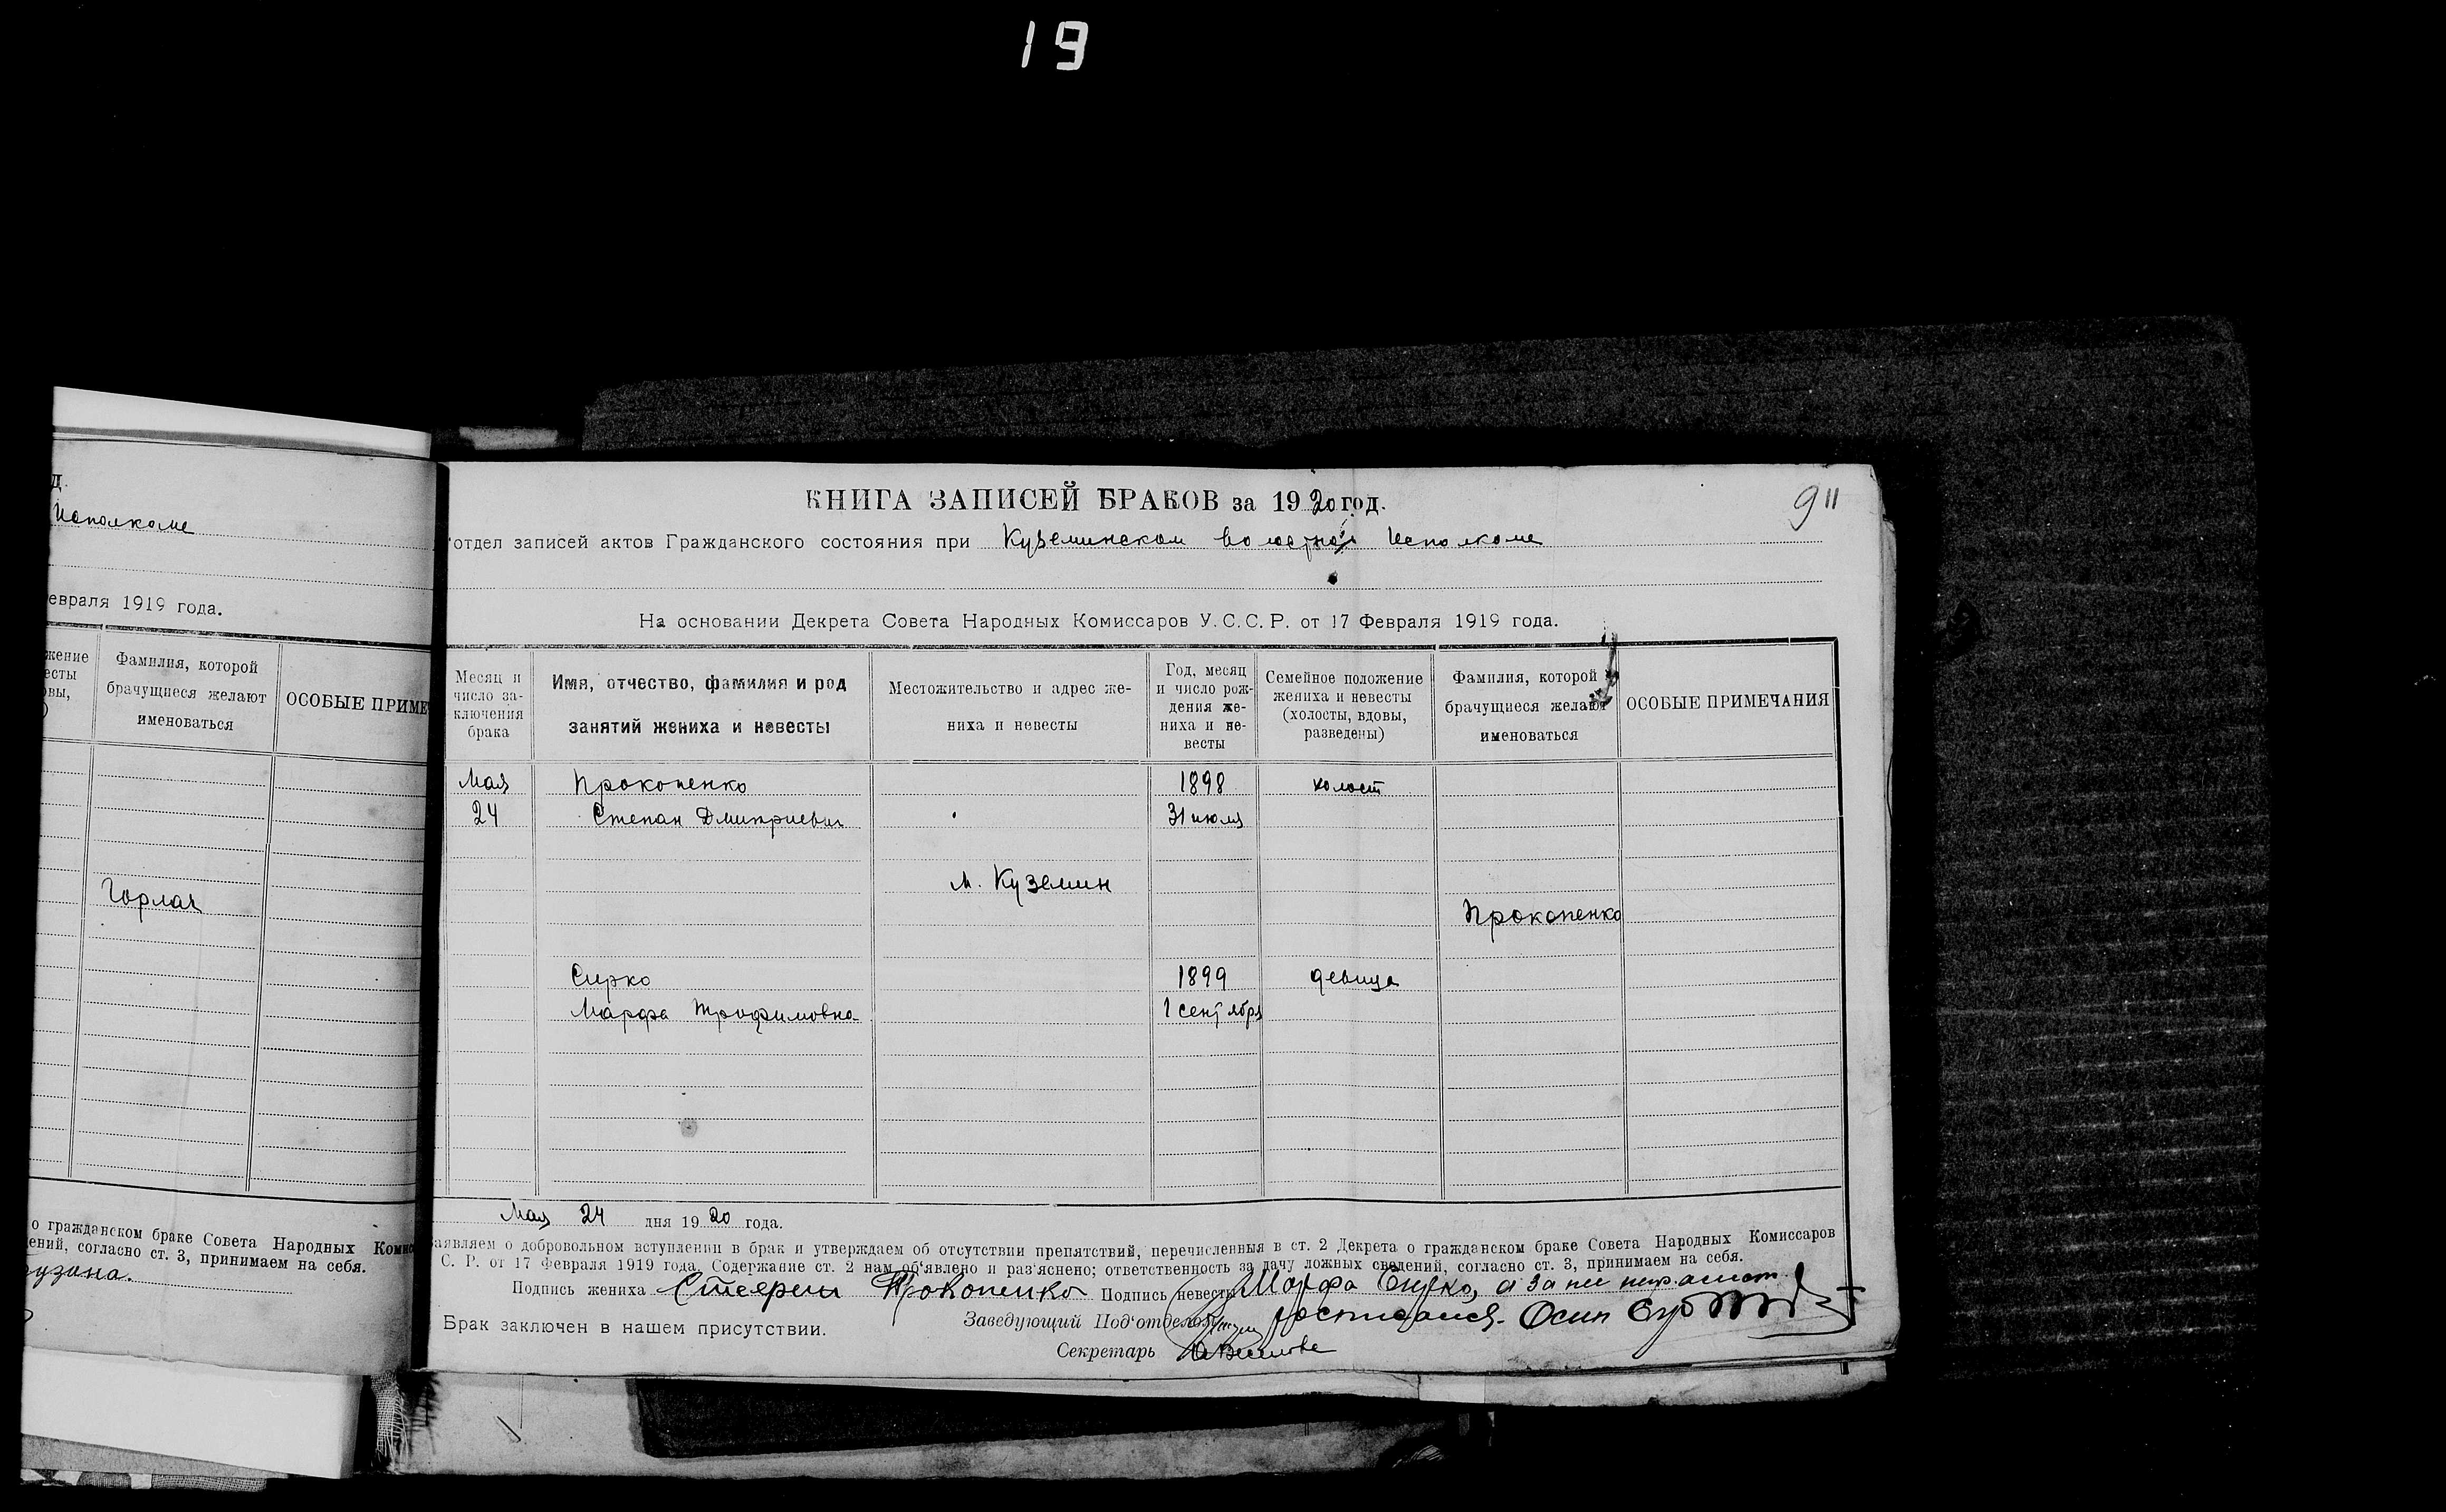 19
д.
Исполкоме
евраля 1919 года.
жение
есты
овы,
)
Фамилия, которой
брачущиеся желают
именоваться
ОСОБЫЕ ПРИМЕ
Горлач
о гражданском браке Совета Народных Комис
ений, согласно ст. 3, принимаем на себя.
КНИГА ЗАПИСЕЙ БРАКОВ за 1920 год.
911
отдел записей актов Гражданского состояния при Куземинском волостном Исполкоме
На основании Декрета Совета Народных Комиссаров У.С.С.Р. от 17 Февраля 1919 года.
Месяц и
число за-
ключения
брака
Имя, отчество, фамилия и род
занятий жениха и невесты
Местожительство и адрес же-
ниха и невесты
Год, месяц
и число рож-
дения же-
ниха и не-
весты
Семейное положение
жениха и невесты
(холосты, вдовы,
разведены)
Фамилия, которой
брачущиеся желают
именоваться
ОСОБЫЕ ПРИМЕЧАНИЯ
Мая Прокопенко 1898 холост
24 Степан Дмитриевич 31 июля
м. Куземин
Прокопенко
Сирко 1899 девица
Марфа Трофимовна 1 сентября
Мая 24 дня 1920 года.
аявляем о добровольном вступлении в брак и утверждаем об отсутствии препятствий, перечисленныя в ст. 2 Декрета о гражданском браке Совета Народных Комиссаров
С. Р. от 17 Февраля 1919 года. Содержание ст. 2 нам об'явлено и раз'яснено; ответственность за дачу ложных сведений, согласно ст. 3, принимаем на себя.
Подпись жениха Прокопенко Подпись невесты Марфа Сирко, а за нее
Заведующий Под'отделом росписался Осип
Брак заключен в нашем присутствии.
Секретарь